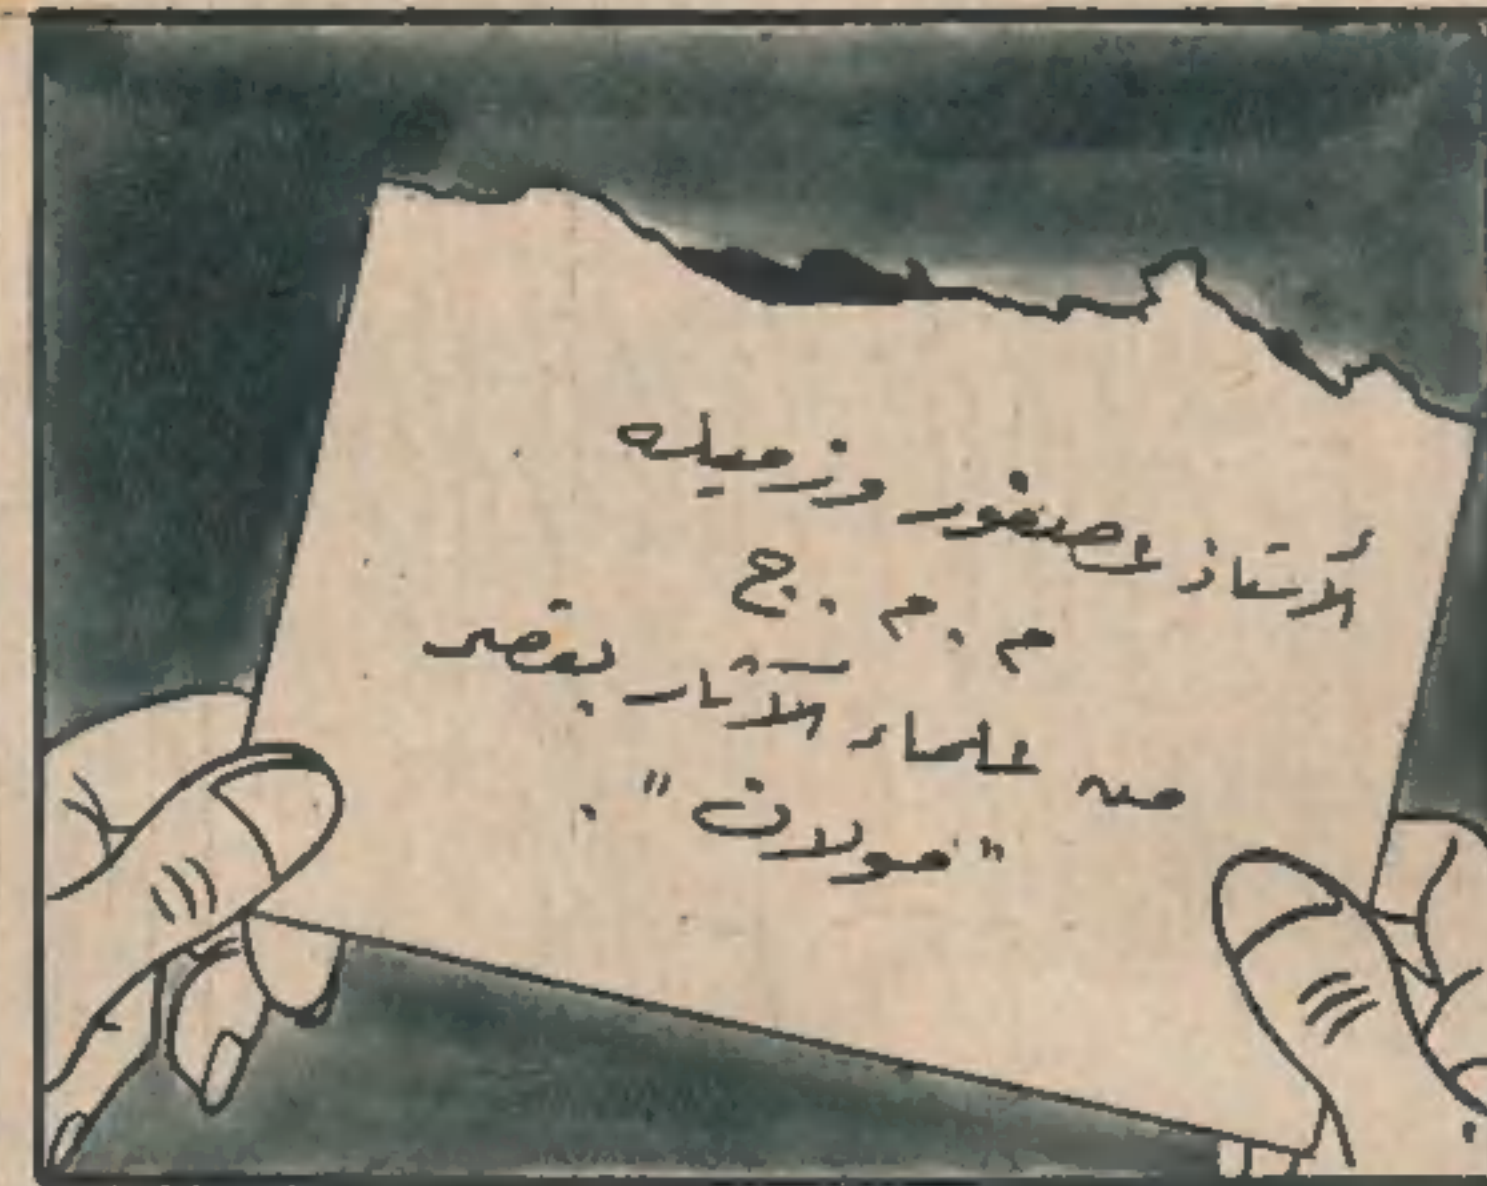 الأستاذ عصفور وزميله
م . م . ج
من علماء الآثار بقصر
"مولان" .